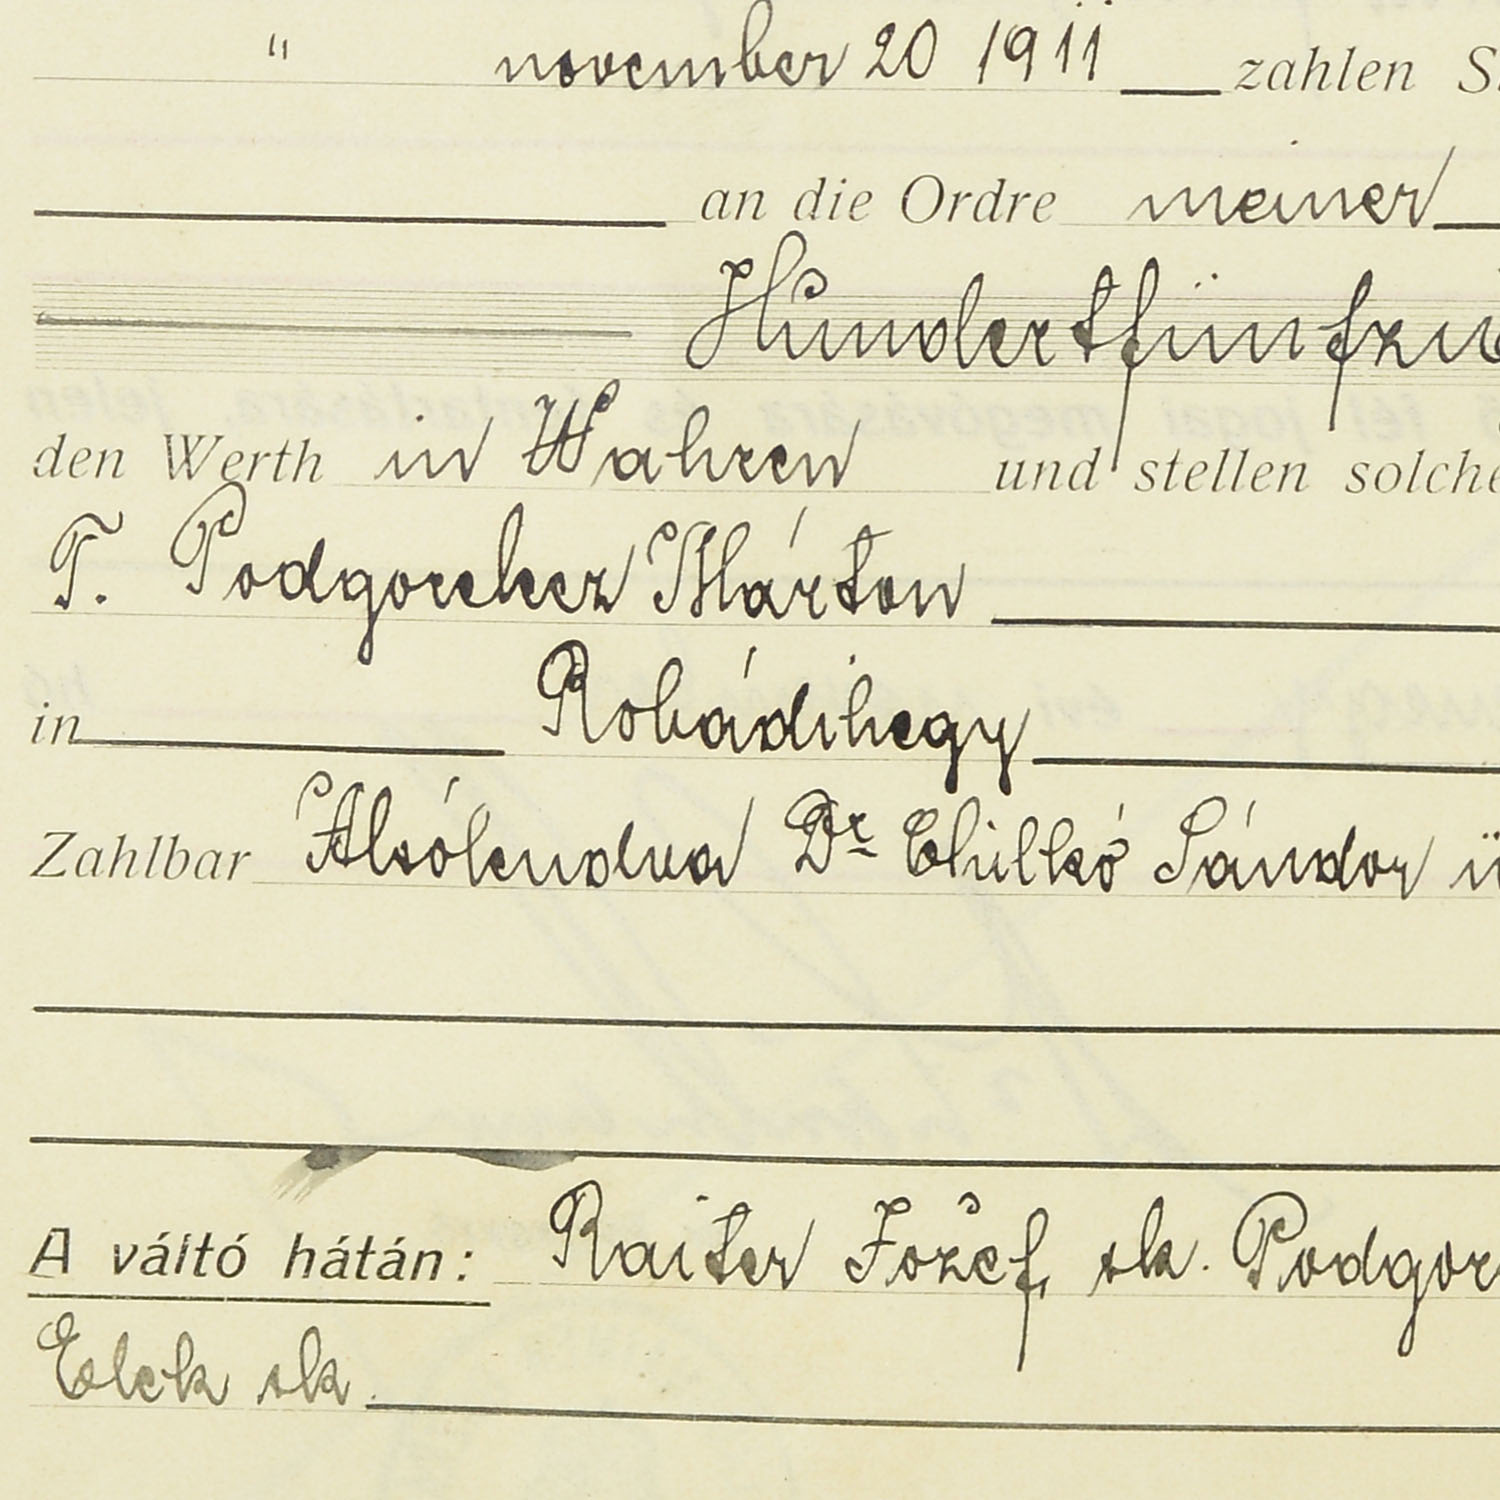 " november 20 1911 zahlen S
an die Ordre meiner
Hundertfünfzi
den Werth in Wahren und stellen solche
T. Podgorelecz Márton
in Robádihegy
Zahlbar Alsólendva Dr Chilkó Sándor ü
A váltó hátán: Raiter József, sk. Podgor
Elek sk.